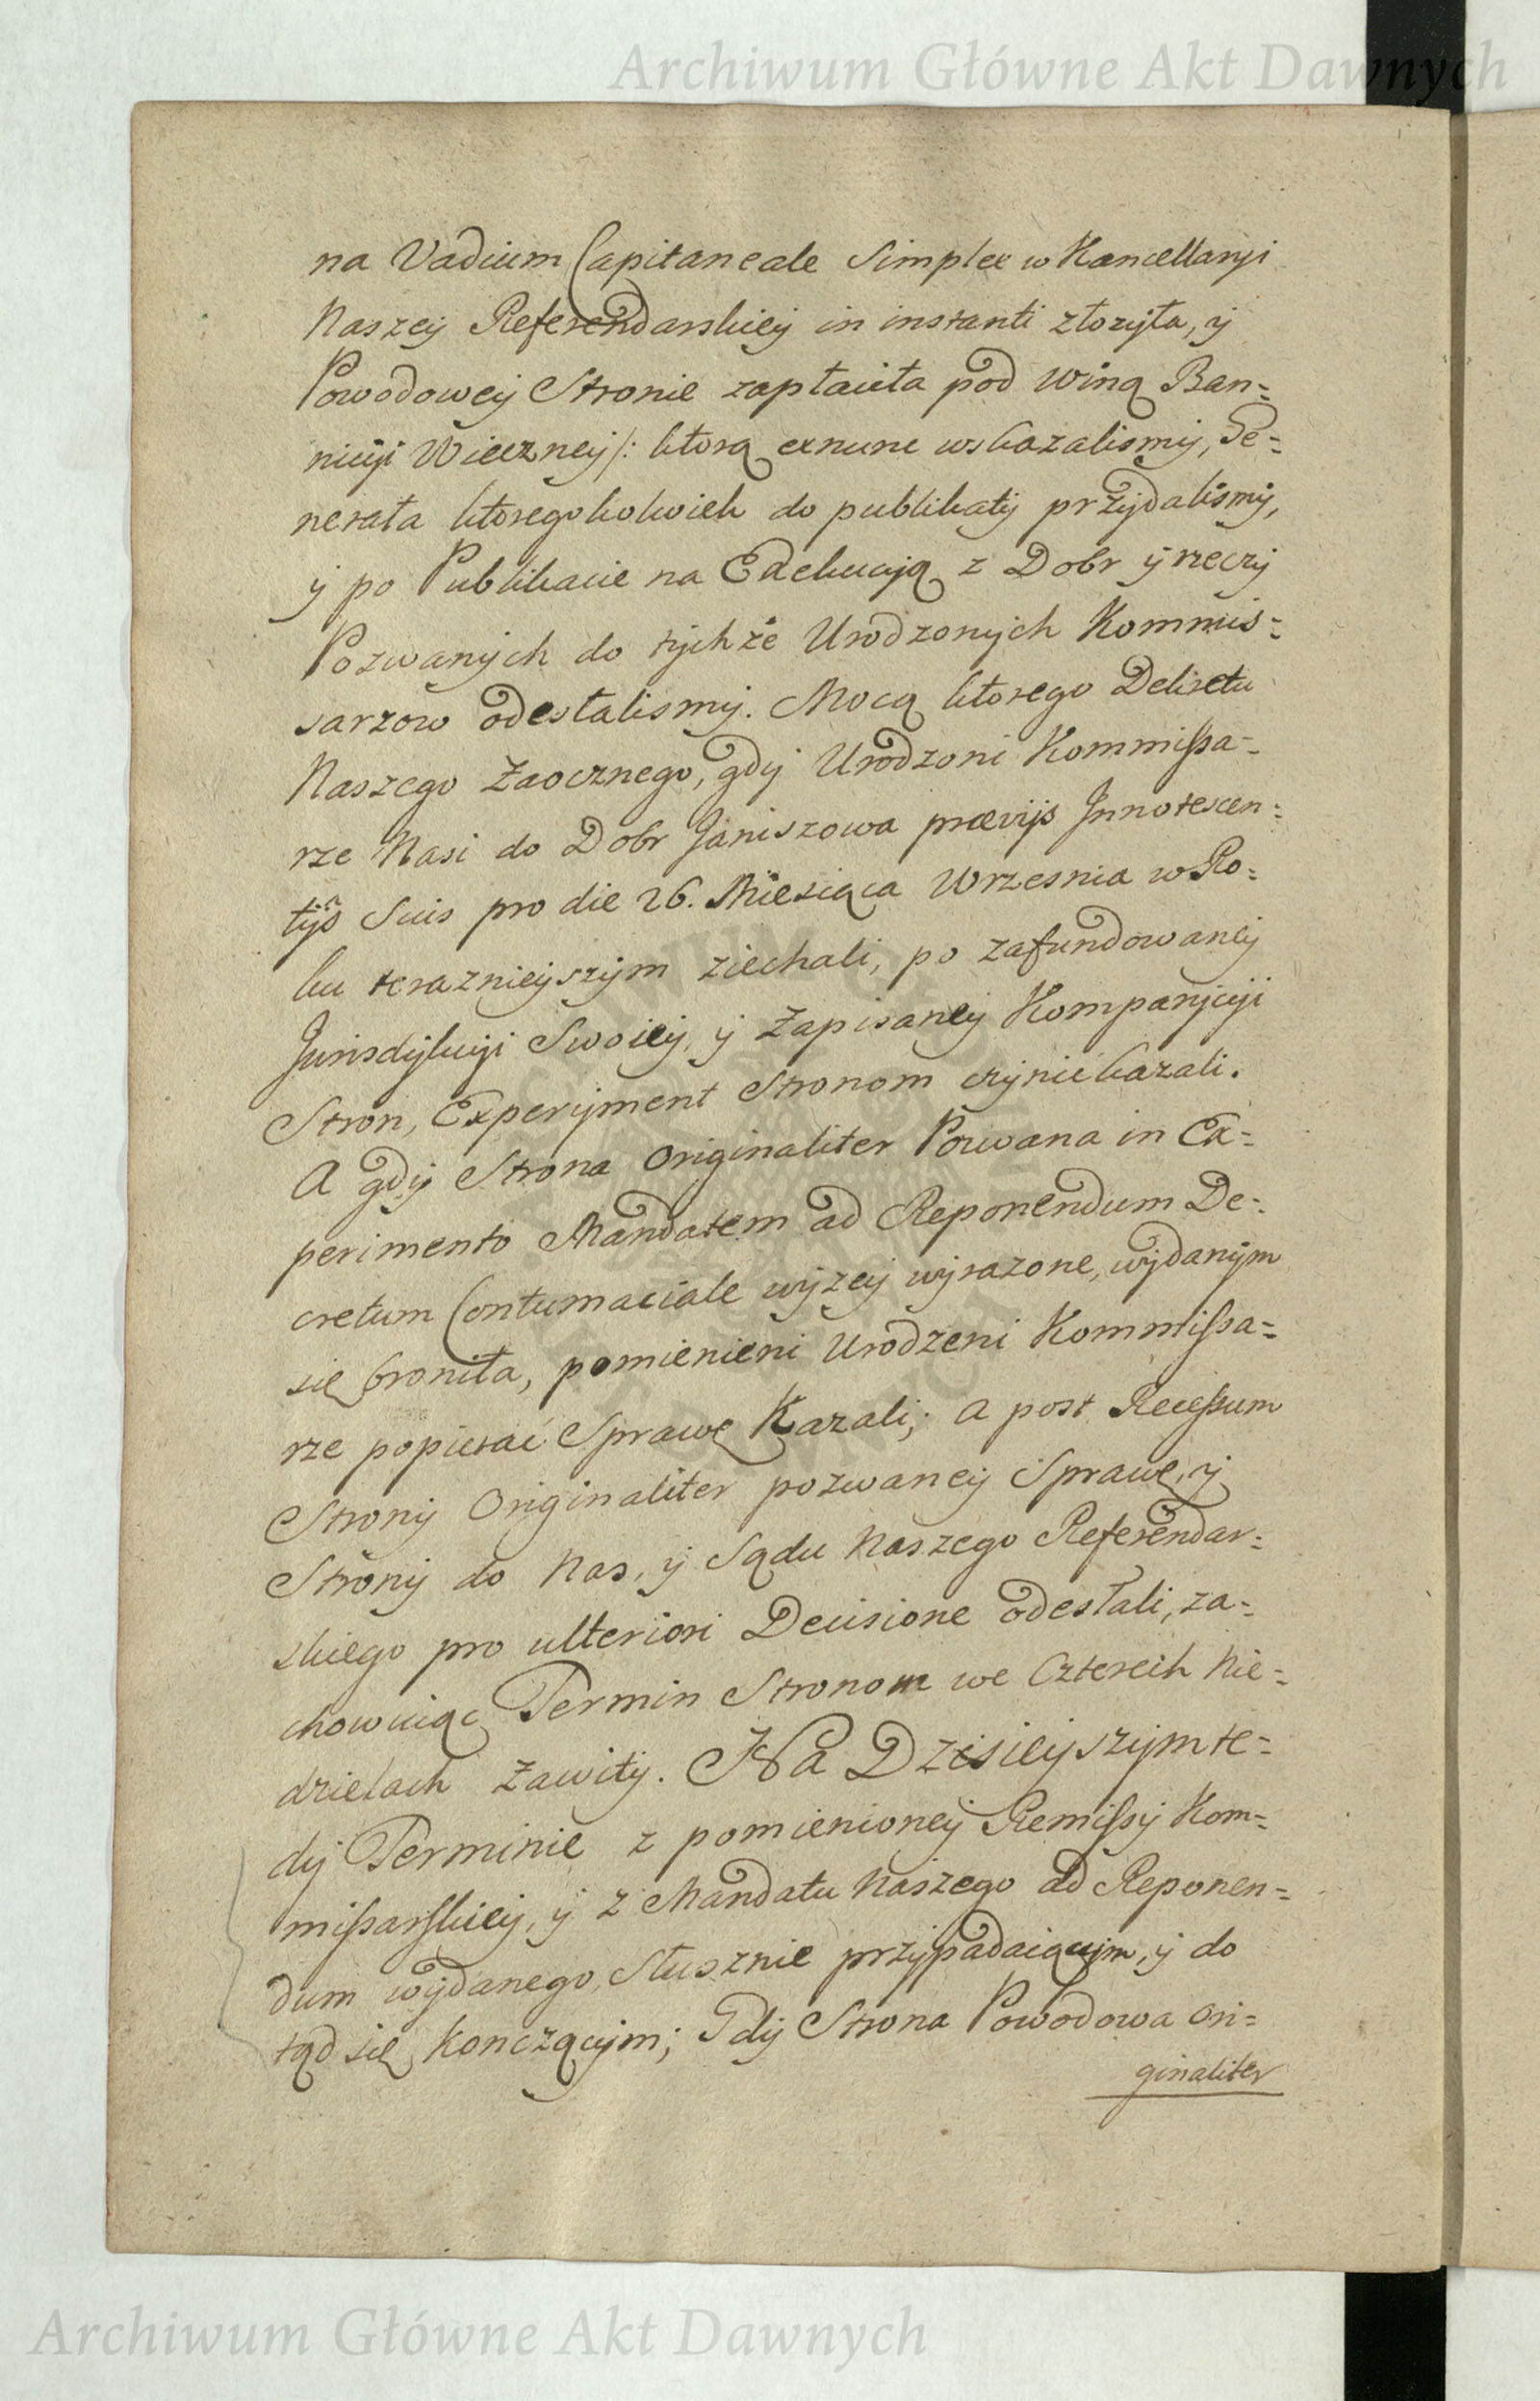 Archiwum Główne Akt Dawnych
na Vadium Capitaneale Simplex w Kancellaryi
Naszey Referendarskiey in instanti złozyła, y
Powodowey Stronie zapłaciła pod winą Ban=
nicyi Wieczney /: ktorą exnunc wskazalismy, Ge=
nerała ktoregokolwiek do publikaty przydalismy,
y po Publikacie na Exekucyią z Dobr y rzeczy
Pozwanych do tychże Urodzonych Kommis=
sarzow odesłalismy. Mocą ktorego Dekretu
Naszego Zaocznego, gdy Urodzoni Kommißa=
rze Nasi do Dobr Janiszowa prævijs Innotescen=
tijs Suis pro die 26. Miesiąca Wrzesnia w Ro=
ku teraznieyszym ziechali, po zafundowaney
Jurisdykcyi Swoiey, y Zapisaney Komparycyi
Stron, Experyment Stronom czynić kazali.
A gdy Strona Originaliter Pozwana in Ex=
perimento Mandatem ad Reponendum De=
cretum Contumaciale wyzey wyrazone, wydanym
się broniła, pomienieni Urodzeni Kommißa=
rze popierać Sprawę Kazali; a post Receßum
Strony Originaliter pozwaney Sprawę, y
Strony do Nas, y Sądu Naszego Referendar=
skiego pro ulteriori Decisione odesłali, za=
chowuiąc Termin Stronom we Czterech Nie=
dzielach Zawity. Na Dzisieyszym te=
dy Terminie z pomienioney Remißy Kom=
mißarskiey, y z Mandatu Naszego ad Reponen=
dum wydanego, Słusznie przypadaiącym, y do
tąd się konczącym; Gdy Strona Powodowa Ori=
ginaliter
Archiwum Główne Akt Dawnych